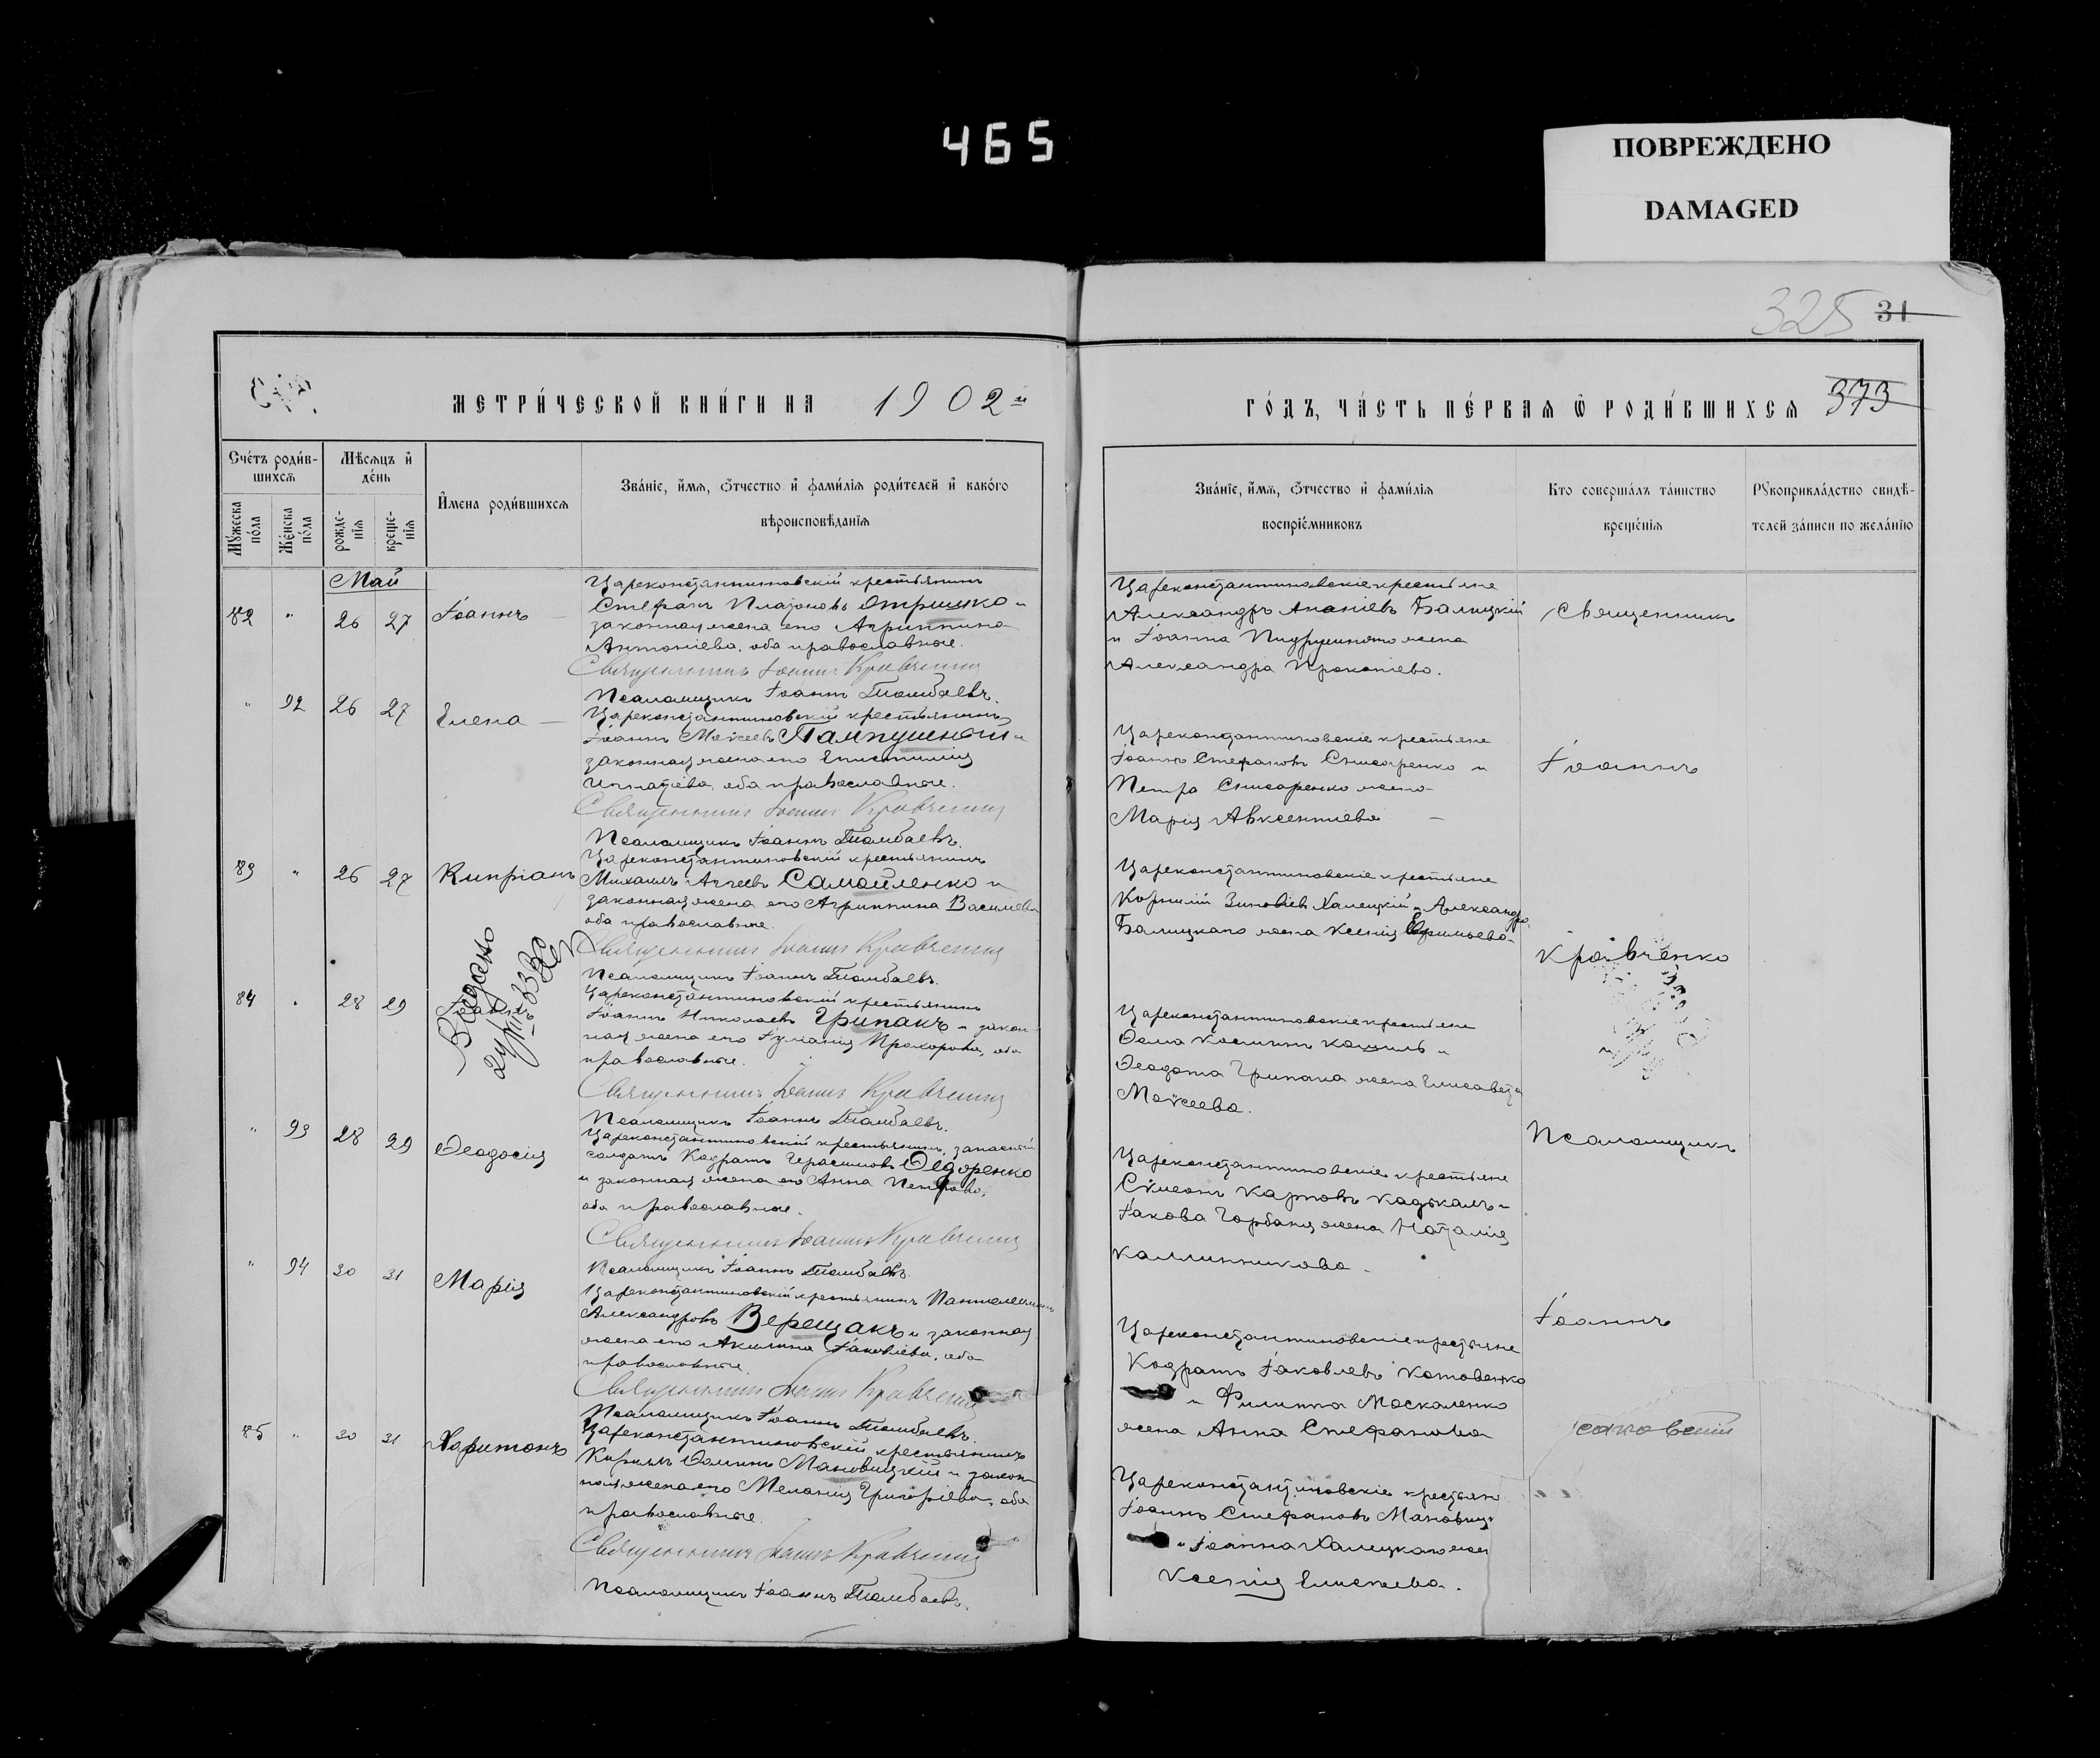 465
ПОВРЕЖДЕНО
DAMAGED
325 31
МЕТРИ́ЧЕСКОЙ КНИ́ГИ НА 1902й
ГО́ДЪ, ЧА́СТЬ ПЕ́РВАЯ Ѡ РОДИ́ВШИХСЯ 373
Сче́тъ роди́в-
шихсѧ
Мѣсѧцъ и҆
де́нь
Мꙋжеска по́ла
Же́нска по́ла
рожде-
нїѧ
креще-
нїѧ
И҆мена роди́вшихсѧ
Зва́нїе, и҆мѧ, ѻ҆тчество и҆ фами́лїѧ роди́телей и҆ како́го
вѣроисповѣ́данїѧ
Зва́нїе, и҆мѧ, ѻ҆тчество и҆ фами́лїѧ
воспрїе́мниковъ
Кто соверша́лъ та́инство
креще́нїѧ
Рꙋкоприкла́дство свидѣ́-
телей за́писи по жела́нїю
Май
82 " 26 27 Іоаннъ
Цареконстантиновскій крестьянинъ
Стефанъ Платоновъ Отришко и
законная жена его Агриппина
Антоніева, оба православные.
Священникъ Іоаннъ Кравченко
Псаломщикъ Іоаннъ
Цареконстантиновскіе крестьяне
Александръ Ананіевъ Балицкій
и Іоанна жена
Александра Прокопіева.
" 92 26 27 Елена
Цареконстантиновскій крестьянинъ
Іоаннъ Моѵсеевъ Пампушный и
законная жена его Епистимія
Игнатіева, оба православные.
Священникъ Іоаннъ Кравченко
Псаломщикъ Іоаннъ
Цареконстантиновскіе крестьяне
Іоаннъ Стефановъ Снисаренко и
Петра Снисаренко жена
Марія Авксентіева
83 " 26 27 Кипріанъ
Цареконстантиновскій крестьянинъ
Михаилъ Аггеевъ Самойленко и
законная жена его Агриппина Василіева
оба православные.
Священникъ Іоаннъ Кравченко
Псаломщикъ Іоаннъ
Цареконстантиновскіе крестьяне
Корнилій Зиновіевъ Халецкій и Александра
Балицкаго жена Ксенія
84 " 28 29 Іоаннъ
Видано
Цареконстантиновскій крестьянинъ
Іоаннъ Николаевъ Грипакъ и закон-
ная жена его Іуліанія Прохорова, оба
православные.
Священникъ Іоаннъ Кравченко
Псаломщикъ Іоаннъ
Цареконстантиновскіе крестьяне
Ѳома Косминъ Кошиль и
Ѳеодота Грипака жена Елисавета
Моѵсеева.
" 93 28 29 Ѳеодосія
Цареконстантиновскій крестьянинъ, запасный
солдатъ Кодратъ Герасимовъ Ѳедоренко
и законная жена его Анна Петрова,
оба православные.
Священникъ Іоаннъ Кравченко
Псаломщикъ Іоаннъ
Цареконстантиновскіе крестьяне
Сѵмеонъ Карповъ и
Іакова Горбаня жена Наталія
Каллиникова
" 94 30 31 Марія
Цареконстантиновскій крестьянинъ Пантелеимонъ
Александровъ Верещакъ и законная
жена его Акилина Іаковлева, оба
православные.
Священникъ Іоаннъ Кравченко
Псаломщикъ Іоаннъ
Цареконстантиновскіе крестьяне
Кодратъ Іаковлевъ Котовенко
и Филиппа Москаленко
жена Анна Стефанова
85 " 30 31 Харитонъ
Цареконстантиновскій крестьянинъ
Кириллъ Ѳоминъ Мановицкій и закон-
ная жена его Меланія Григоріева, оба
православные.
Священникъ Іоаннъ Кравченко
Псаломщикъ Іоаннъ
Цареконстантиновскіе крестьян
Іоаннъ Стефановъ Мановиц
и Іоанна Халецкаго жен
Ксенія Елисеева.
Священникъ
Іоаннъ
Кравченко
Псаломщикъ
Іоаннъ